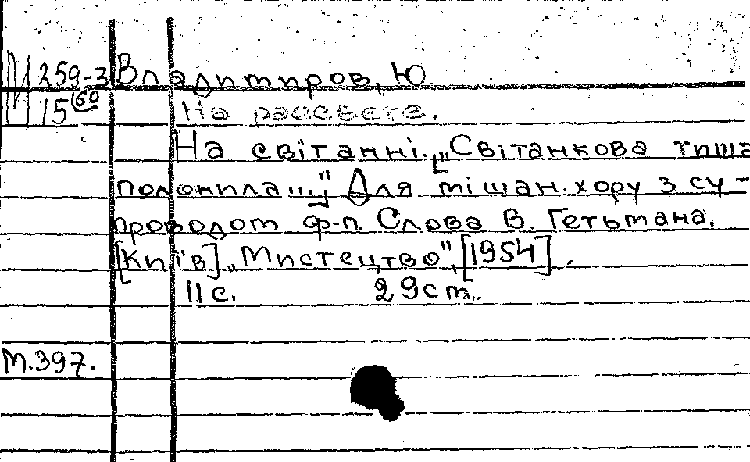 М 259-3 Владимиров, Ю
15 60 На рассвете.
На світанні. [„Світанкова тиша
полонила..."] Для мішан. хору з су-
проводом ф-п. Слова В. Гетьмана.
[Київ] „Мистецтво", [1954].
11 с. 29 cm.
М.397.